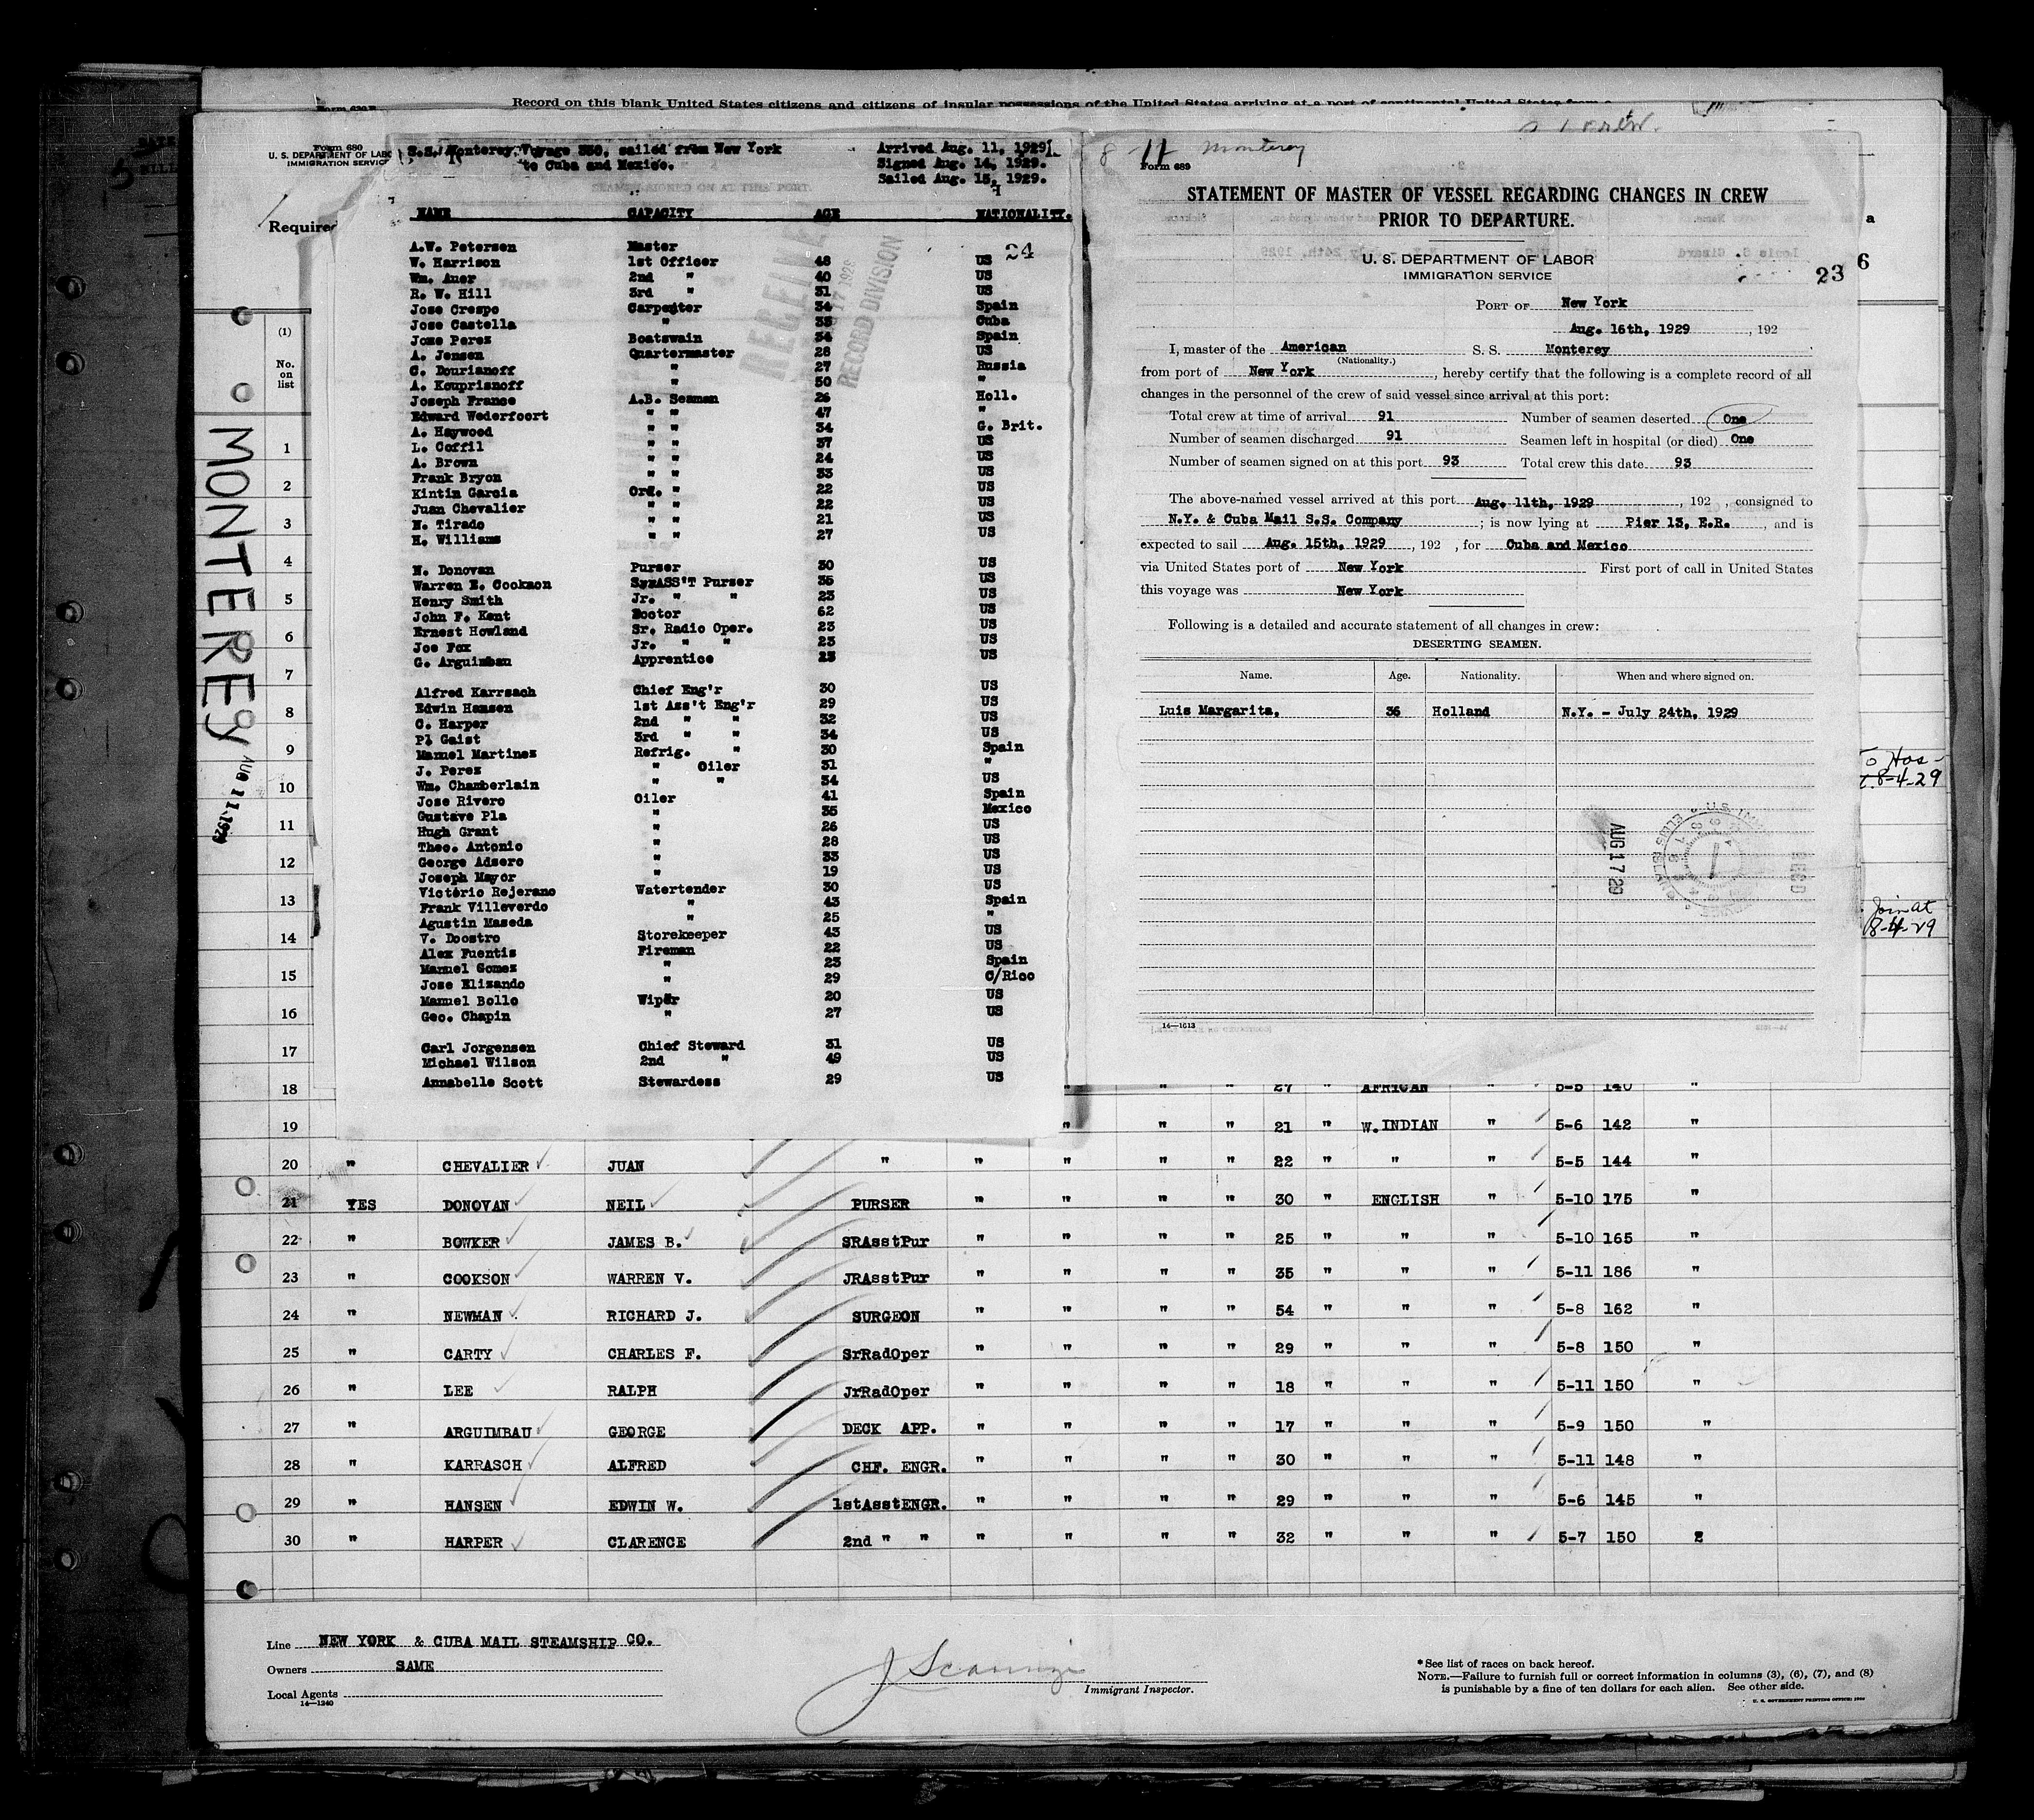 Record on this blank United States citizens and citizens of insular possessions of the United States arriving at a port of continental United States from a
Form 680
U. S. DEPARTMENT OF LABO
IMMIGRATION SERVICE
Required
(1)
No.
on
list
MONTEREY
AUG 11 1929
S.S. Monterey, Voyage 350, sailed from New York
to Cuba and Mexico.
Arrived Aug. 11, 1929.
Signed Aug. 14, 1929.
Sailed Aug. 15, 1929.
NAME CAPACITY AGE NATIONALITY.
24
RECEIVED
RECORD DIVISION
A.W. Petersen Master
W. Harrison 1st Officer 48 US
Wm. Auer 2nd " 40 US
R. W. Hill 3rd " 31 US
Jose Crespo Carpenter 34 Spain
Jose Castella " 35 Cuba
Jose Perez Boatswain 34 Spain
A. Jensen Quartermaster 28 US
C. Dourianoff " 27 Russia
A. Kouprianoff " 50 "
Joseph France A.B. Seaman 26 Holl.
Edward Wederfoort " " 47 "
A. Haywood " " 34 G. Brit.
L. Coffil " " 37 US
A. Brown " " 24 US
Frank Bryon " " 33 US
Kintin Garcia Ord. " 22 US
Juan Chevalier " " 22 US
N. Tirado " " 21 US
H. Williams " " 27 US
N. Donovan Purser 30 US
Warren E. Cookson ASS'T Purser 35 US
Henry Smith Jr. " " 23 US
John F. Kent Doctor 62 US
Ernest Howland Sr. Radio Oper. 23 US
Joe Fox Jr. " " 23 US
G. Arguimbau Apprentice US
Alfred Karrsach Chief Eng'r 30 US
Edwin Hansen 1st Ass't Eng'r 29 US
C. Harper 2nd " " 32 US
Pl Gaist 3rd " " 34 US
Manuel Martinez Refrig. " 30 Spain
J. Perez " Oiler 31 "
Wm. Chamberlain " " 34 US
Jose Rivero Oiler 41 Spain
Gustave Pla " 35 Mexico
Hugh Grant " 26 US
Theo. Antonio " 28 US
George Adsero " 33 US
Joseph Mayor " 19 US
Victorio Rejerano Watertender 30 US
Frank Villeverdo " 43 Spain
Agustin Maseda " 25 "
V. Doostro Storekeeper 43 US
Alex Fuentis Fireman 22 US
Manuel Gomez " 23 Spain
Jose Elizando " 29 C/Rico
Manuel Bollo Wiper 20 US
Geo. Chapin " 27 US
Carl Jorgensen Chief Steward 31 US
Michael Wilson 2nd " 49 US
Annabelle Scott Stewardess 29 US
8-11 Monterey
Form 689
STATEMENT OF MASTER OF VESSEL REGARDING CHANGES IN CREW
PRIOR TO DEPARTURE.
U. S. DEPARTMENT OF LABOR
IMMIGRATION SERVICE
23
a
6
PORT OF New York
Aug. 16th, 1929, 192
I, master of the American S. S. Monterey
(Nationality.)
from port of New York, hereby certify that the following is a complete record of all
changes in the personnel of the crew of said vessel since arrival at this port:
Total crew at time of arrival 91 Number of seamen deserted One
Number of seamen discharged 91 Seamen left in hospital (or died) One
Number of seamen signed on at this port 93 Total crew this date 93
The above-named vessel arrived at this port Aug. 11th, 1929, 192 , consigned to
N.Y. & Cuba Mail S.S. Company; is now lying at Pier 13, E.R., and is
expected to sail Aug. 15th, 1929, 192 , for Cuba and Mexico
via United States port of New York First port of call in United States
this voyage was New York
Following is a detailed and accurate statement of all changes in crew:
DESERTING SEAMEN.
Name. Age. Nationality. When and where signed on.
Luis Margarita, 36 Holland N.Y. - July 24th, 1929
AUG 17 29
14—1613
To Hos-
8-4-29
Join at
8-4-29
1
2
3
4
5
6
7
8
9
10
11
12
13
14
15
16
17
18 " " " 27 " AFRICAN " 5-5 140 "
19 " " " 21 " W. INDIAN " 5-6 142 "
20 " CHEVALIER JUAN " " " " " 22 " " " 5-5 144 "
21 YES DONOVAN NEIL PURSER " " " " 30 " ENGLISH " 5-10 175 "
22 " BOWKER JAMES B. SRAsstPur " " " " 25 " " " 5-10 165 "
23 " COOKSON WARREN V. JRAsstPur " " " " 35 " " " 5-11 186 "
24 " NEWMAN RICHARD J. SURGEON " " " " 54 " " " 5-8 162 "
25 " CARTY CHARLES F. SrRadOper " " " " 29 " " " 5-8 150 "
26 " LEE RALPH JrRadOper " " " " 18 " " " 5-11 150 "
27 " ARGUIMBAU GEORGE DECK APP. " " " " 17 " " " 5-9 150 "
28 " KARRASCH ALFRED CHF. ENGR. " " " " 30 " " " 5-11 148 "
29 " HANSEN EDWIN W. 1stAsstENGR. " " " " 29 " " " 5-6 145 "
30 " HARPER CLARENCE 2nd " " " " " " 32 " " " 5-7 150
Line NEW YORK & CUBA MAIL STEAMSHIP CO.
Owners SAME
Local Agents
14—1240
Immigrant Inspector.
*See list of races on back hereof.
NOTE.—Failure to furnish full or correct information in columns (3), (6), (7), and (8)
is punishable by a fine of ten dollars for each alien. See other side.